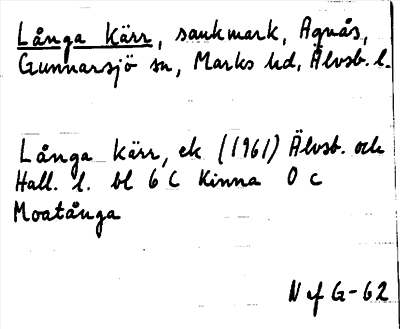 Långa Kärr, sankmark, Agnås,
Gunnarsjö sn, Marks hd, Älvsb. l.
Långa Kärr, ek (1961) Älvsb. och
Hall. l. bl 6 C Kinna 0 c
Moatånga
N ef G-62